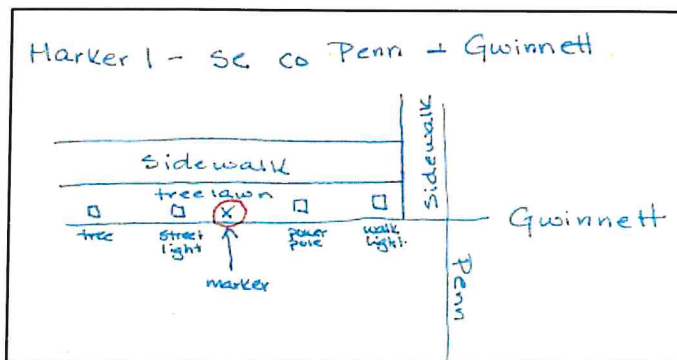 Marker 1 - SE co Penn + Gwinnett
Sidewalk
Sidewalk
treelawn
X
tree
street light
power pole
walk light
Gwinnett
marker
Penn